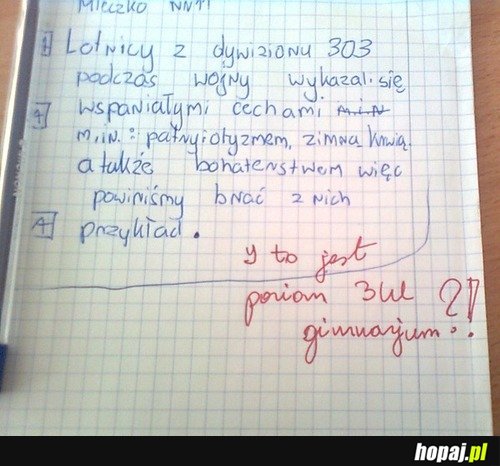 Mleczko NN11
1 Lotnicy z dywizionu 303
podczas wojny wykazali się
1 wspaniałymi cechami min
m.in.: patryiotyzmem, zimną krwią.
a także bohaterstwem więc
powiniśmy brać z nich
1 przykład.
y to jest
poziom 3kl
gimnazjum?!
hopaj.pl